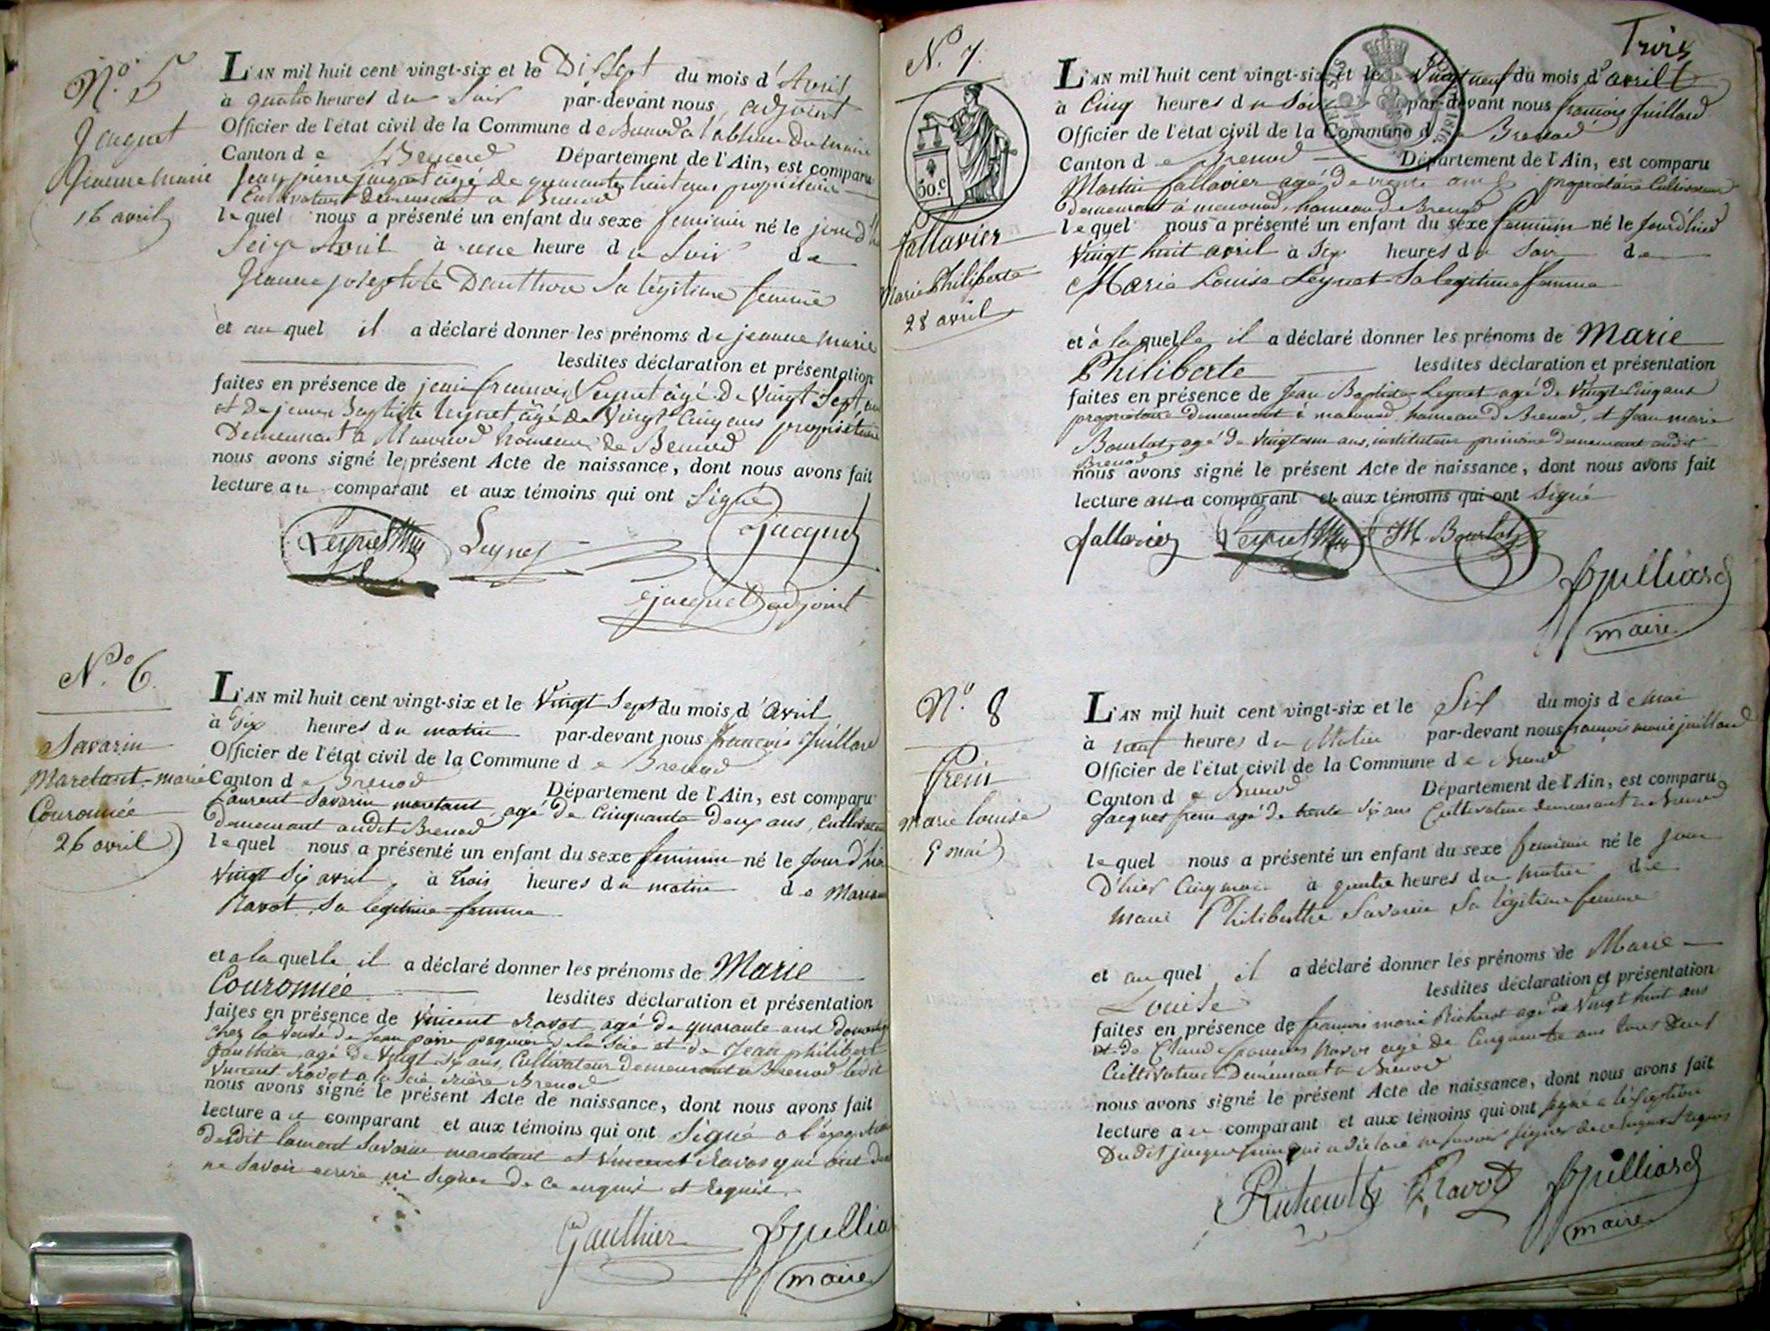 N.o 5
Jacquet
Jeanne Marie
16 avril
L'AN mil huit cent vingt-six et le Dix Sept du mois d'Avril
à quatre heures du Soir par-devant nous, adjoint
Officier de l'état civil de la Commune de Brenod à l'absence du maire
Canton de Brenod Département de l'Ain, est comparu
Jean pierre jacquet agé de quarante huit ans propriétaire
Cultivateur demeurant a Brenod
lequel nous a présenté un enfant du sexe feminin né le jour d'
Seize Avril à une heure du Soir de
Jeanne josephte Dauthon Sa légitime femme
et au quel il a déclaré donner les prénoms de jeanne marie
lesdites déclaration et présentation
faites en présence de jean françois Leynet âgé de Vingt Sept ans
et de jean Baptiste Leynet âgé de Vingt Cinq ans propriétaire
Demeurant à hameau de Brenod
nous avons signé le présent Acte de naissance, dont nous avons fait
lecture au comparant et aux témoins qui ont Signé
Leynet Leynet Jacquet
jacquet adjoint
N.o 6.
Savarin
Maretant-marie
Couronnée
26 avril
L'AN mil huit cent vingt-six et le Vingt Sept du mois d'Avril
à Six heures du matin par-devant nous françois Juillard
Officier de l'état civil de la Commune de Brenod
Canton de Brenod Département de l'Ain, est comparu
Laurent Savarin maretant agé de Cinquante deux ans, Cultivateur
demeurant audit Brenod
lequel nous a présenté un enfant du sexe feminin né le Jour d'hier
Vingt Six avril à trois heures du matin de
Ravot, Sa legitime femme
et a laquelle il a déclaré donner les prénoms de Marie
Couronnée lesdites déclaration et présentation
faites en présence de Vincent Ravot agé de quarante ans
chez la veuve de Jean la Scie et de Jean philibert
Gauthier agé de Vingt Six ans, Cultivateur demeurant a Brenod ledit
Vincent Ravot a la Scie Brenod
nous avons signé le présent Acte de naissance, dont nous avons fait
lecture au comparant et aux témoins qui ont Signé a l'exception
dudit laurent Savarin maretant et Vincent Ravot qui ont
ne Savoir ecrire ni Signer de ce enquis et Requis.
Gauthier Juillia
maire
Trois
N.o 7.
30 c
fallavier
Marie Philiberte
28 avril
L'AN mil huit cent vingt-six et le Vingt neuf du mois d'avril
à Cinq heures du Soir par-devant nous françois Juillard
Officier de l'état civil de la Commune de Brenod
Canton de Brenod Département de l'Ain, est comparu
Martin fallavier agé de trente ans propriétaire Cultivateur
demeurant à hameau de Brenod
lequel nous a présenté un enfant du sexe feminin né le Jour d'hier
Vingt huit avril à Six heures du Soir de
Marie Louise Leynet Sa legitime femme
et à laquelle il a déclaré donner les prénoms de Marie
Philiberte lesdites déclaration et présentation
faites en présence de Jean Baptiste Leynet agé de Vingt Cinq ans
propriétaire demeurant à hameau de Brenod, et Jean marie
Bourlot agé de ans, instituteur primaire demeurant audit
Brenod
nous avons signé le présent Acte de naissance, dont nous avons fait
lecture au comparant et aux témoins qui ont Signé
fallavier Leynet J M. Bourlot
Juilliard
maire
N.o 8
frein
Marie louise
5 mai
L'AN mil huit cent vingt-six et le Six du mois de mai
à neuf heures du Matin par-devant nous françois marie juillard
Officier de l'état civil de la Commune de Brenod
Canton de Brenod Département de l'Ain, est comparu
Jacques frein agé de trente Six ans Cultivateur demeurant a Brenod
lequel nous a présenté un enfant du sexe feminin né le Jour
D'hier Cinq mai à quatre heures du matin de
marie Philiberthe Savarin Sa légitime femme
et au quel il a déclaré donner les prénoms de Marie
Louise lesdites déclaration et présentation
faites en présence de françois marie Richerot agé de Vingt huit ans
et de Claude françois Ravot agé de Cinquante ans tous deux
Cultivateur Demeurant a Brenod
nous avons signé le présent Acte de naissance, dont nous avons fait
lecture au comparant et aux témoins qui ont signé a l'éxception
Du dit jacques frein qui a déclaré ne savoir signer de ce Requis
Ravot Juilliard
maire